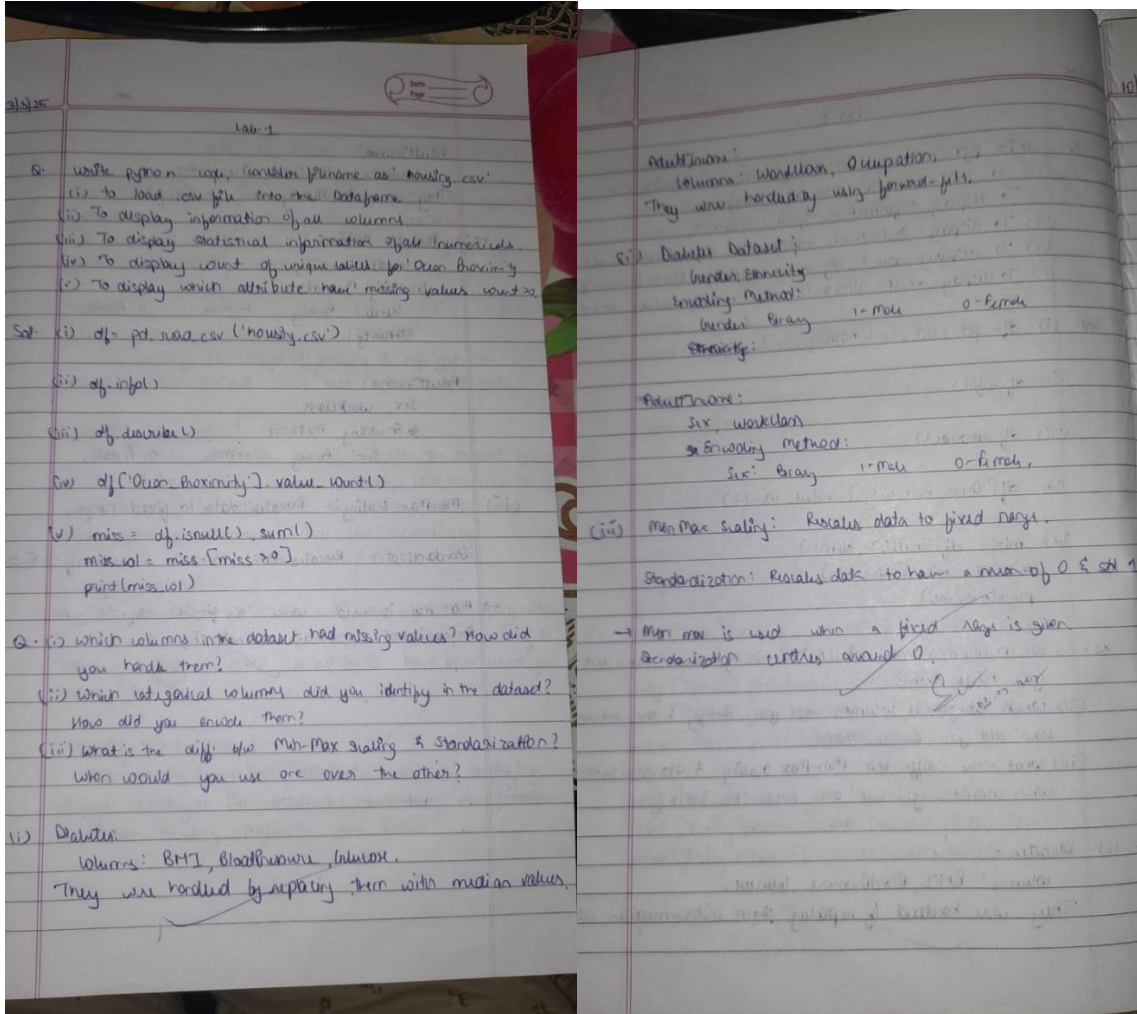 3/3/25
Date
Page
Lab-1
Q. Write python code, consider filename as 'housing.csv'
(i) to load .csv file into the Dataframe
(ii) To display information of all columns.
(iii) To display statistical information of all numericals.
(iv) To display count of unique values for 'Ocean Proximity
(v) To display which attribute have missing values count >0.
Sol. (i) df = pd.read_csv('housing.csv')
(ii) df.info()
(iii) df.describe()
(iv) df['Ocean_Proximity'].value_count()
(v) miss = df.isnull().sum()
miss_col = miss [miss >0]
print(miss_col)
Q. (i) Which columns in the dataset had missing values? How did
you handle them?
(ii) Which categorical columns did you identify in the dataset?
How did you encode them?
(iii) What is the diff. b/w Min-Max scaling & Standarization?
When would you use one over the other?
(i) Diabetes.
Columns: BMI, BloodPressure, Glucose.
They were handled by replacing them with median values.
10
Adult Income:
Columns: Workclass, Occupation,
They were handled by using forward-fill.
(ii) Diabetes Dataset;
Gender, Ethnicity
Encoding Method:
Gender: Binary 1-Male 0-Female
Ethnicity:
Adult Income:
Sex, workclass
Encoding Method:
Sex: Binary 1-Male 0-Female.
(iii) Min Max Scaling: Rescales data to fixed range.
Standardization: Rescales data to have a mean of 0 & std 1
→ Min max is used when a fixed range is given
Standarization centres around 0.